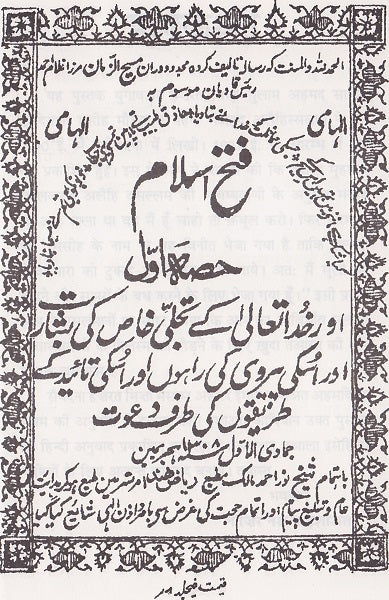 الحمد للہ والمنت کہ رسالہ تالیف کردہ مجدد دوران مسیح الزمان مرزا غلام احمد
رئیس قادیان موسوم بہ
الہامی
الہامی
فتح اسلام
حصہ اول
اور خدا تعالیٰ کے تجلی خاص کی بشارت
اور اُسکی پیروی کی راہوں اور اُسکی تائید کے
طریقوں کی طرف دعوت
جمادی الاول ۱۳۰۸ ہجری میں
باہتمام شیخ نور احمد مالک مطبع ریاض ہند امرتسر میں طبع ہو کر ہدایت
عام و تبلیغ پیام اور اتمام حجت کی غرض سے باذن الٰہی شائع کیا گیا
قیمت فیجلد